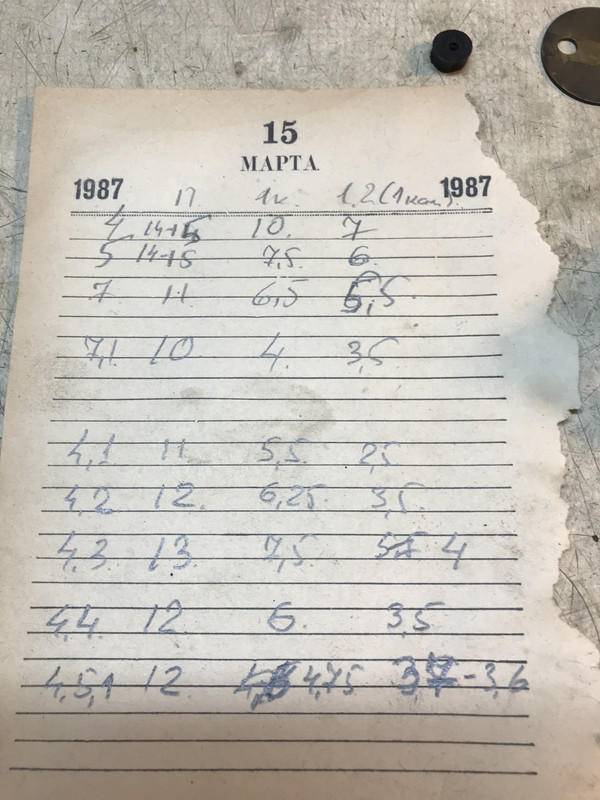 15
МАРТА
1987 П 1к. 1,2(1кан). 1987
4 14+15 10. 7
5 14+15 7,5. 6
7 11 6,5 5,5.
7,1 10 4. 3,5
4,1 11 5,5. 2,5
4,2 12. 6,25. 3,5.
4,3 13 7,5. 4
4,4. 12. 6. 3,5
4,5,1 12 4,75 -3,6